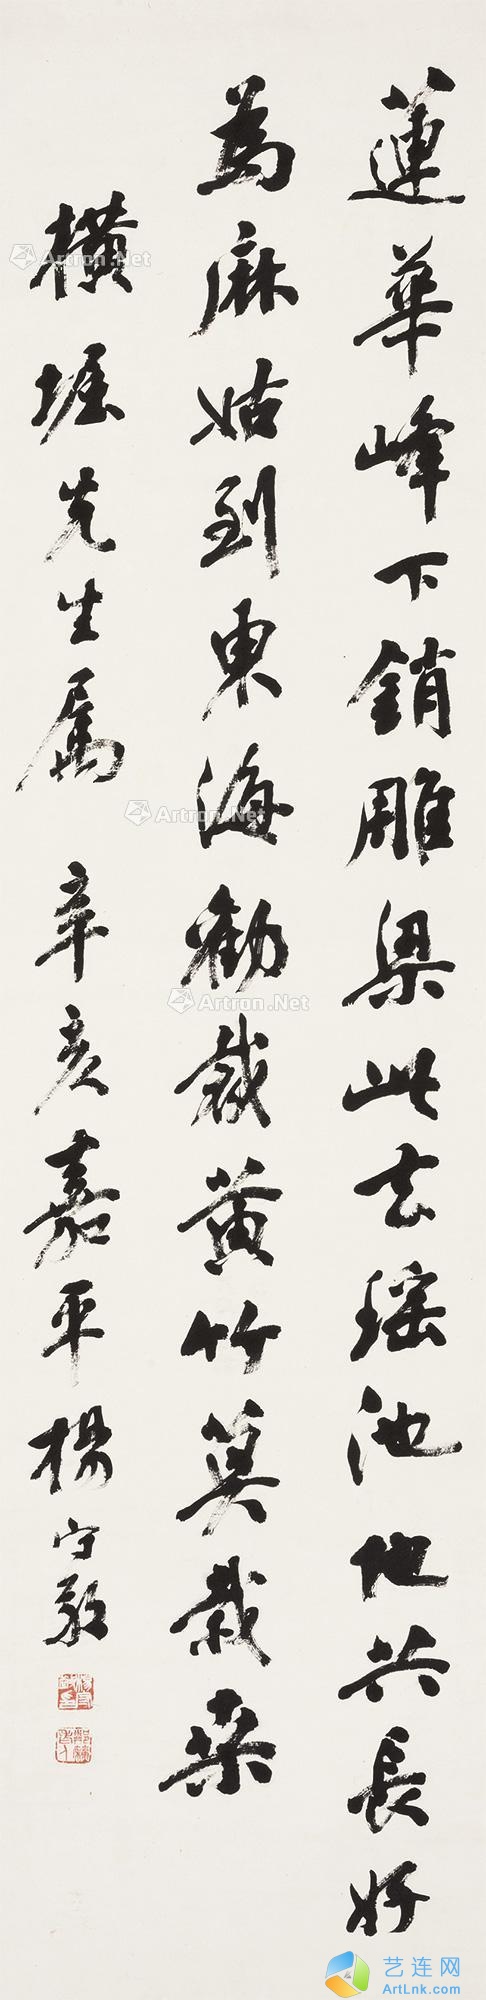 蓮華峰下銷雕梁此去瑶池地共長好
為麻姑到東海勸栽黄竹莫栽桑
横堀先生属 辛亥嘉平楊守敬
楊守敬印
鄰蘇老人
Artron.Net
Artron.Net
Artron.Net
艺连网
ArtLnk.com